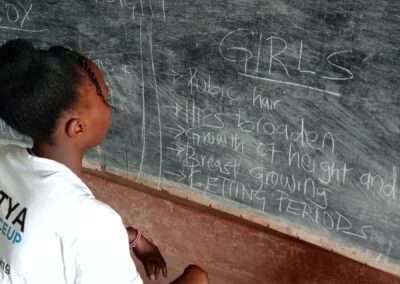 OX
GIRLS
→ Pubic hair
→ Hips broaden
→ Growth of height and
→ Breast growing
→ GETTING PERIODS
TYA
CEUP